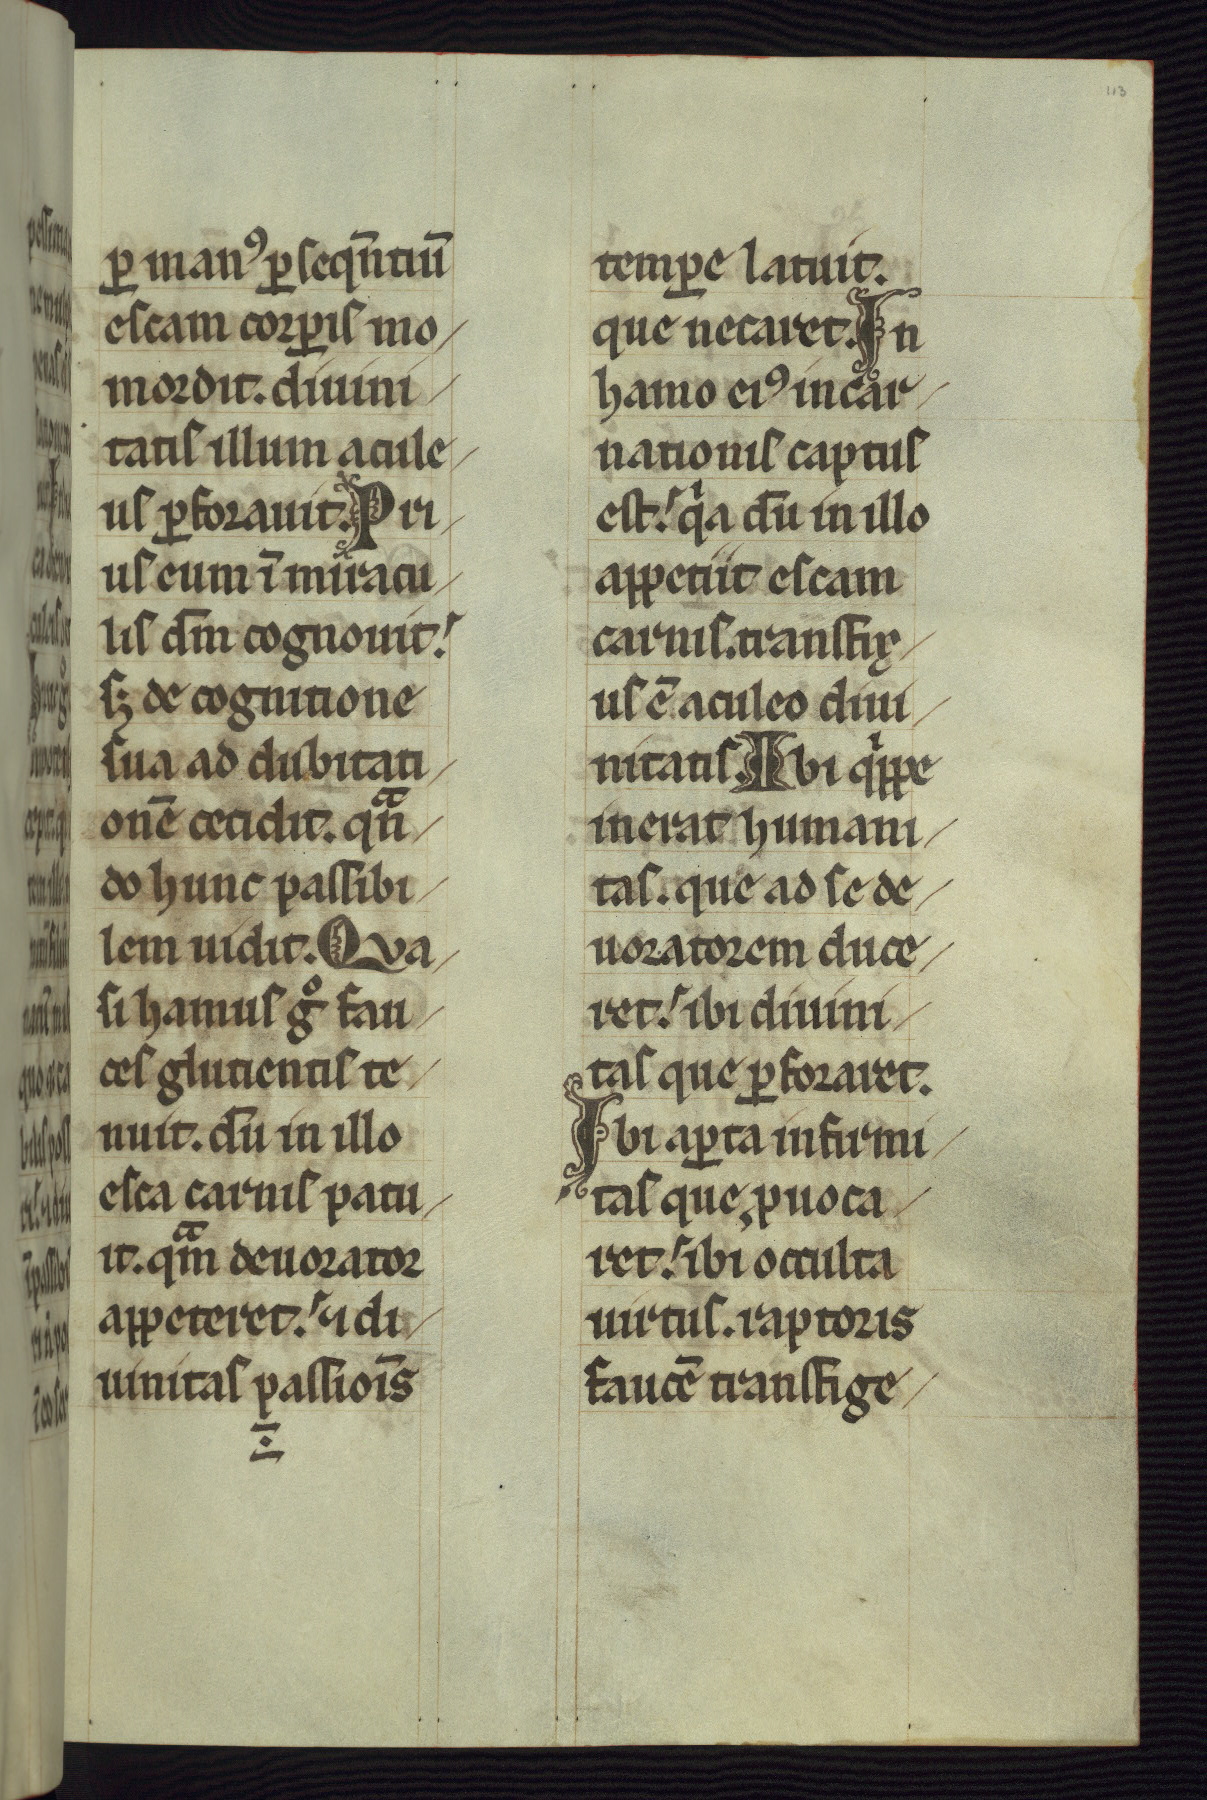 113
ꝑ manꝰ ꝑseqn̄tiū
escam corꝑis mo
mordit. diuini
tatis illum acule
us ꝑforauit. Pri
us eum ī miracu
lis dm̄ cognouit.
sꝫ de cognitione
sua ad dubitati
onē cecidit. qnᷓ
do hunc passibi
lem uidit. Qva
si hamus gͦ fau
ces glutientis te
nuit. dū in illo
esca carnis patu
it. qmᷓ deuorator
appeteret. ⁊ di
uinitas passiōis
temꝑe latuit.
que necaret. In
hamo eiꝰ incar
nationis captus
est. qͥa dū in illo
appetiit escam
carnis. transfix
us ē aculeo diui
nitatis. Ibi qͥppe
inerat humani
tas. que ad se de
uoratorem duce
ret. ibi diuini
tas que ꝑforaret.
Ibi aꝑta infirmi
tas que ꝓuoca
ret. ibi occulta
uirtus. raptoris
faucē transfige